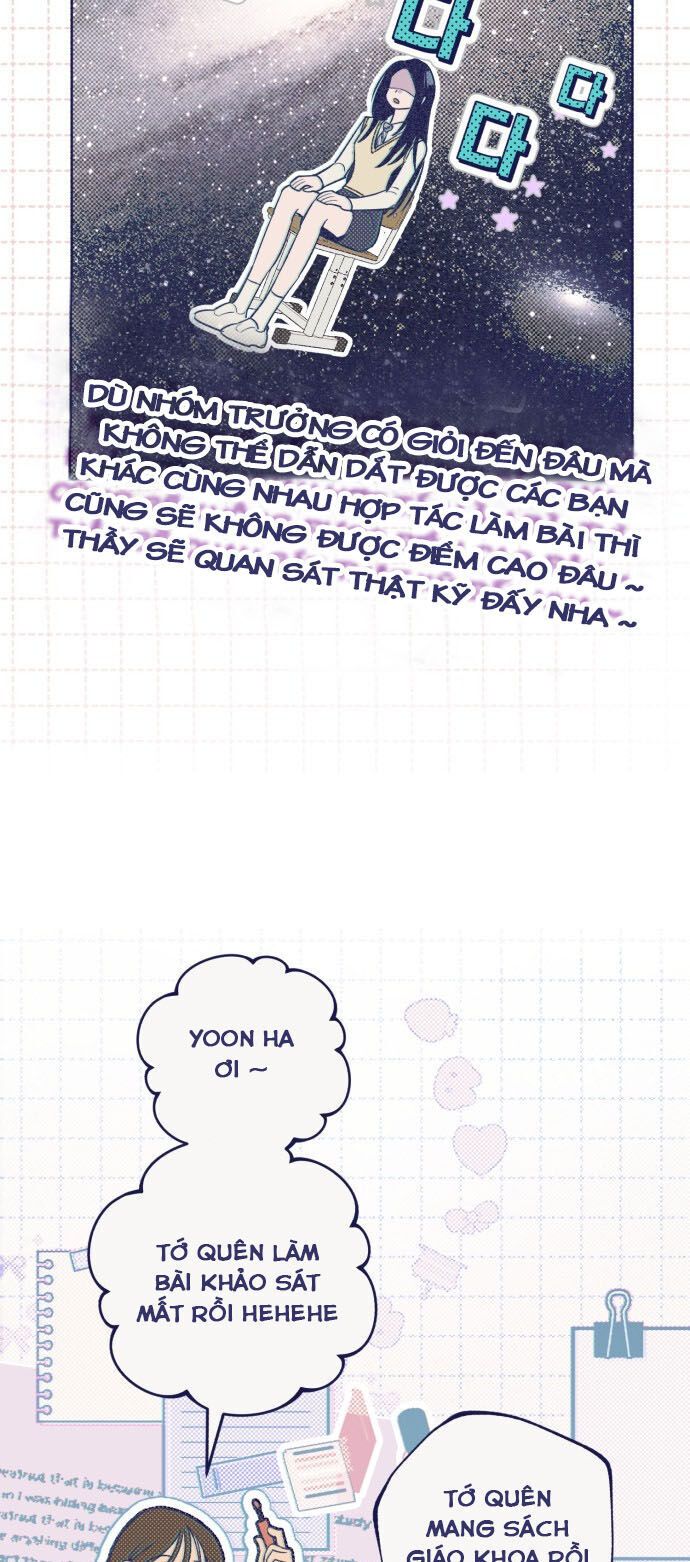 다
다
다
DÙ NHÓM TRƯỞNG CÓ GIỎI ĐẾN ĐÂU MÀ
KHÔNG THỂ DẪN DẮT ĐƯỢC CÁC BẠN
KHÁC CÙNG NHAU HỢP TÁC LÀM BÀI THÌ
CŨNG SẼ KHÔNG ĐƯỢC ĐIỂM CAO ĐÂU ~
THẦY SẼ QUAN SÁT THẬT KỸ ĐẤY NHA ~
YOON HA
ƠI ~
TỚ QUÊN LÀM
BÀI KHẢO SÁT
MẤT RỒI HEHEHE
TỚ QUÊN
MANG SÁCH
GIÁO KHOA RỒI
study